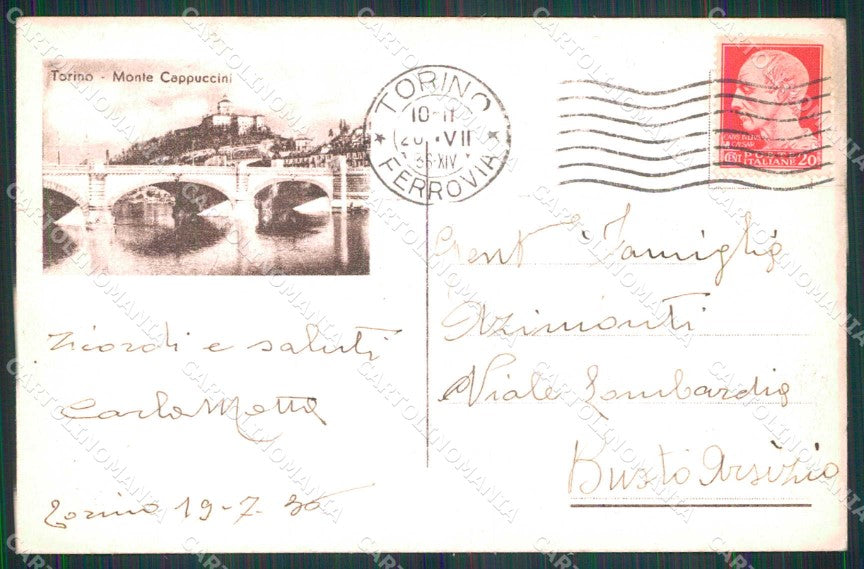 Torino - Monte Cappuccini
TORINO
10-11
20 · VII
36·XIV
FERROVIA
CAIO GIULIO
CESARE
CENT ITALIANE 20
Gent Famiglia
Azimonti
Viale Lombardia
Busto Arsizio
ricordi e saluti
Carlo Motta
Torino 19-7-36
CARTOLINOMANIA